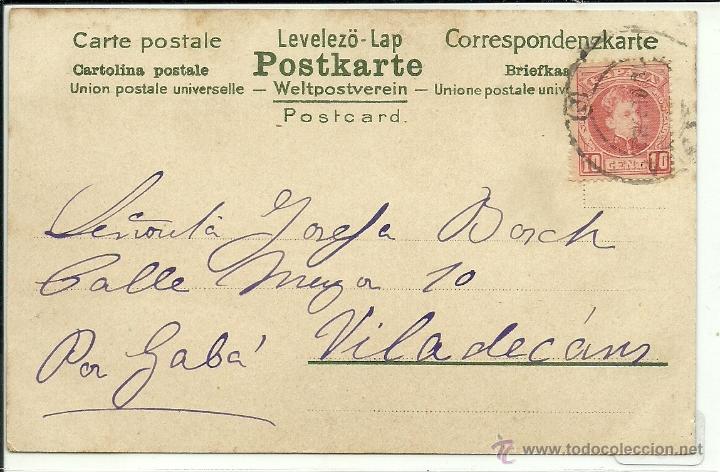 Carte postale Levelező-Lap Correspondenzkarte
Cartolina postale Postkarte Briefkaa
Union postale universelle — Weltpostverein — Unione postale univ
Postcard.
ESPAÑA
10 CENT 10
Señorita Josefa Bosch
Calle Mayor 10
Por Gabá Viladecáns
www.todocoleccion.net